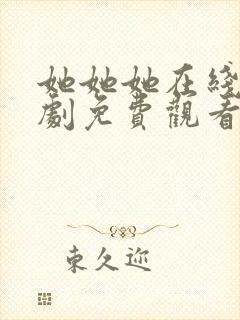 她她她在綫
劇免費觀看
東久迩